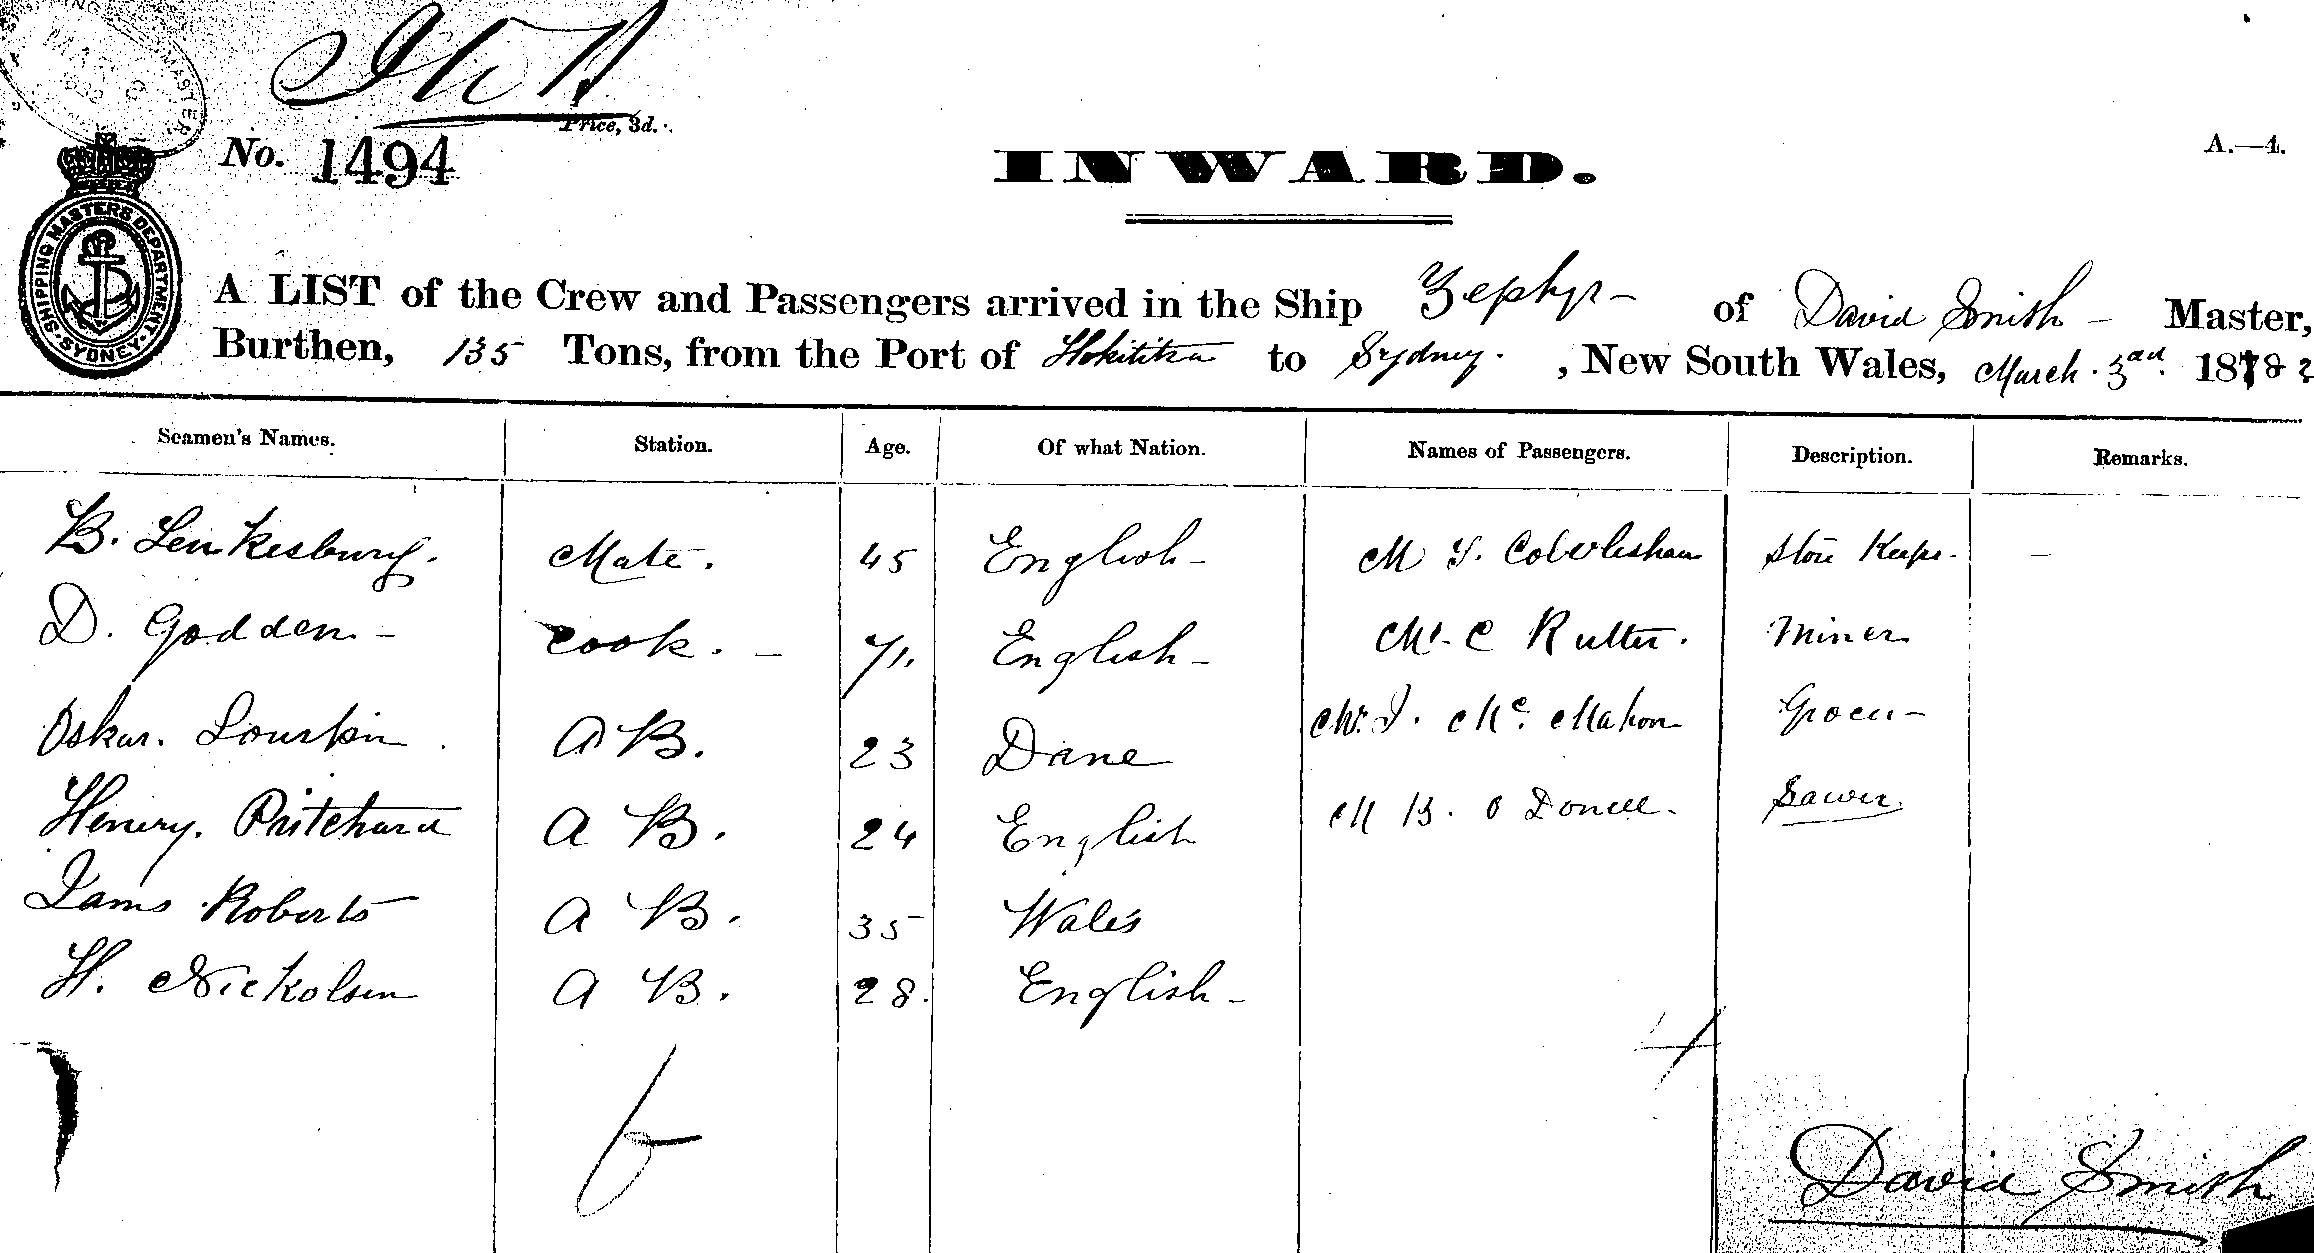 Price, 3d.
No. 1494
INWARD.
A.—4.
SHIPPING MASTERS DEPARTMENT SYDNEY
A LIST of the Crew and Passengers arrived in the Ship Zephyr of David Smith Master,
Burthen, 135 Tons, from the Port of Hokitika to Sydney. , New South Wales, March. 3rd. 1882
Seamen's Names. Station. Age. Of what Nation. Names of Passengers. Description. Remarks.
B. Mate. 45 English M Store Keeper
D. Godden Cook. 71. English Mr. C Rutter. Miner
Oskar. A B. 23 Dane Mr. J. Mc. Mahon Grocer
Henery. Pritchard A B. 24 English M B. O Donell. Sawer
Jams Roberts A B. 35 Wales
H. Nickolsen A B. 28. English
6 4
David Smith